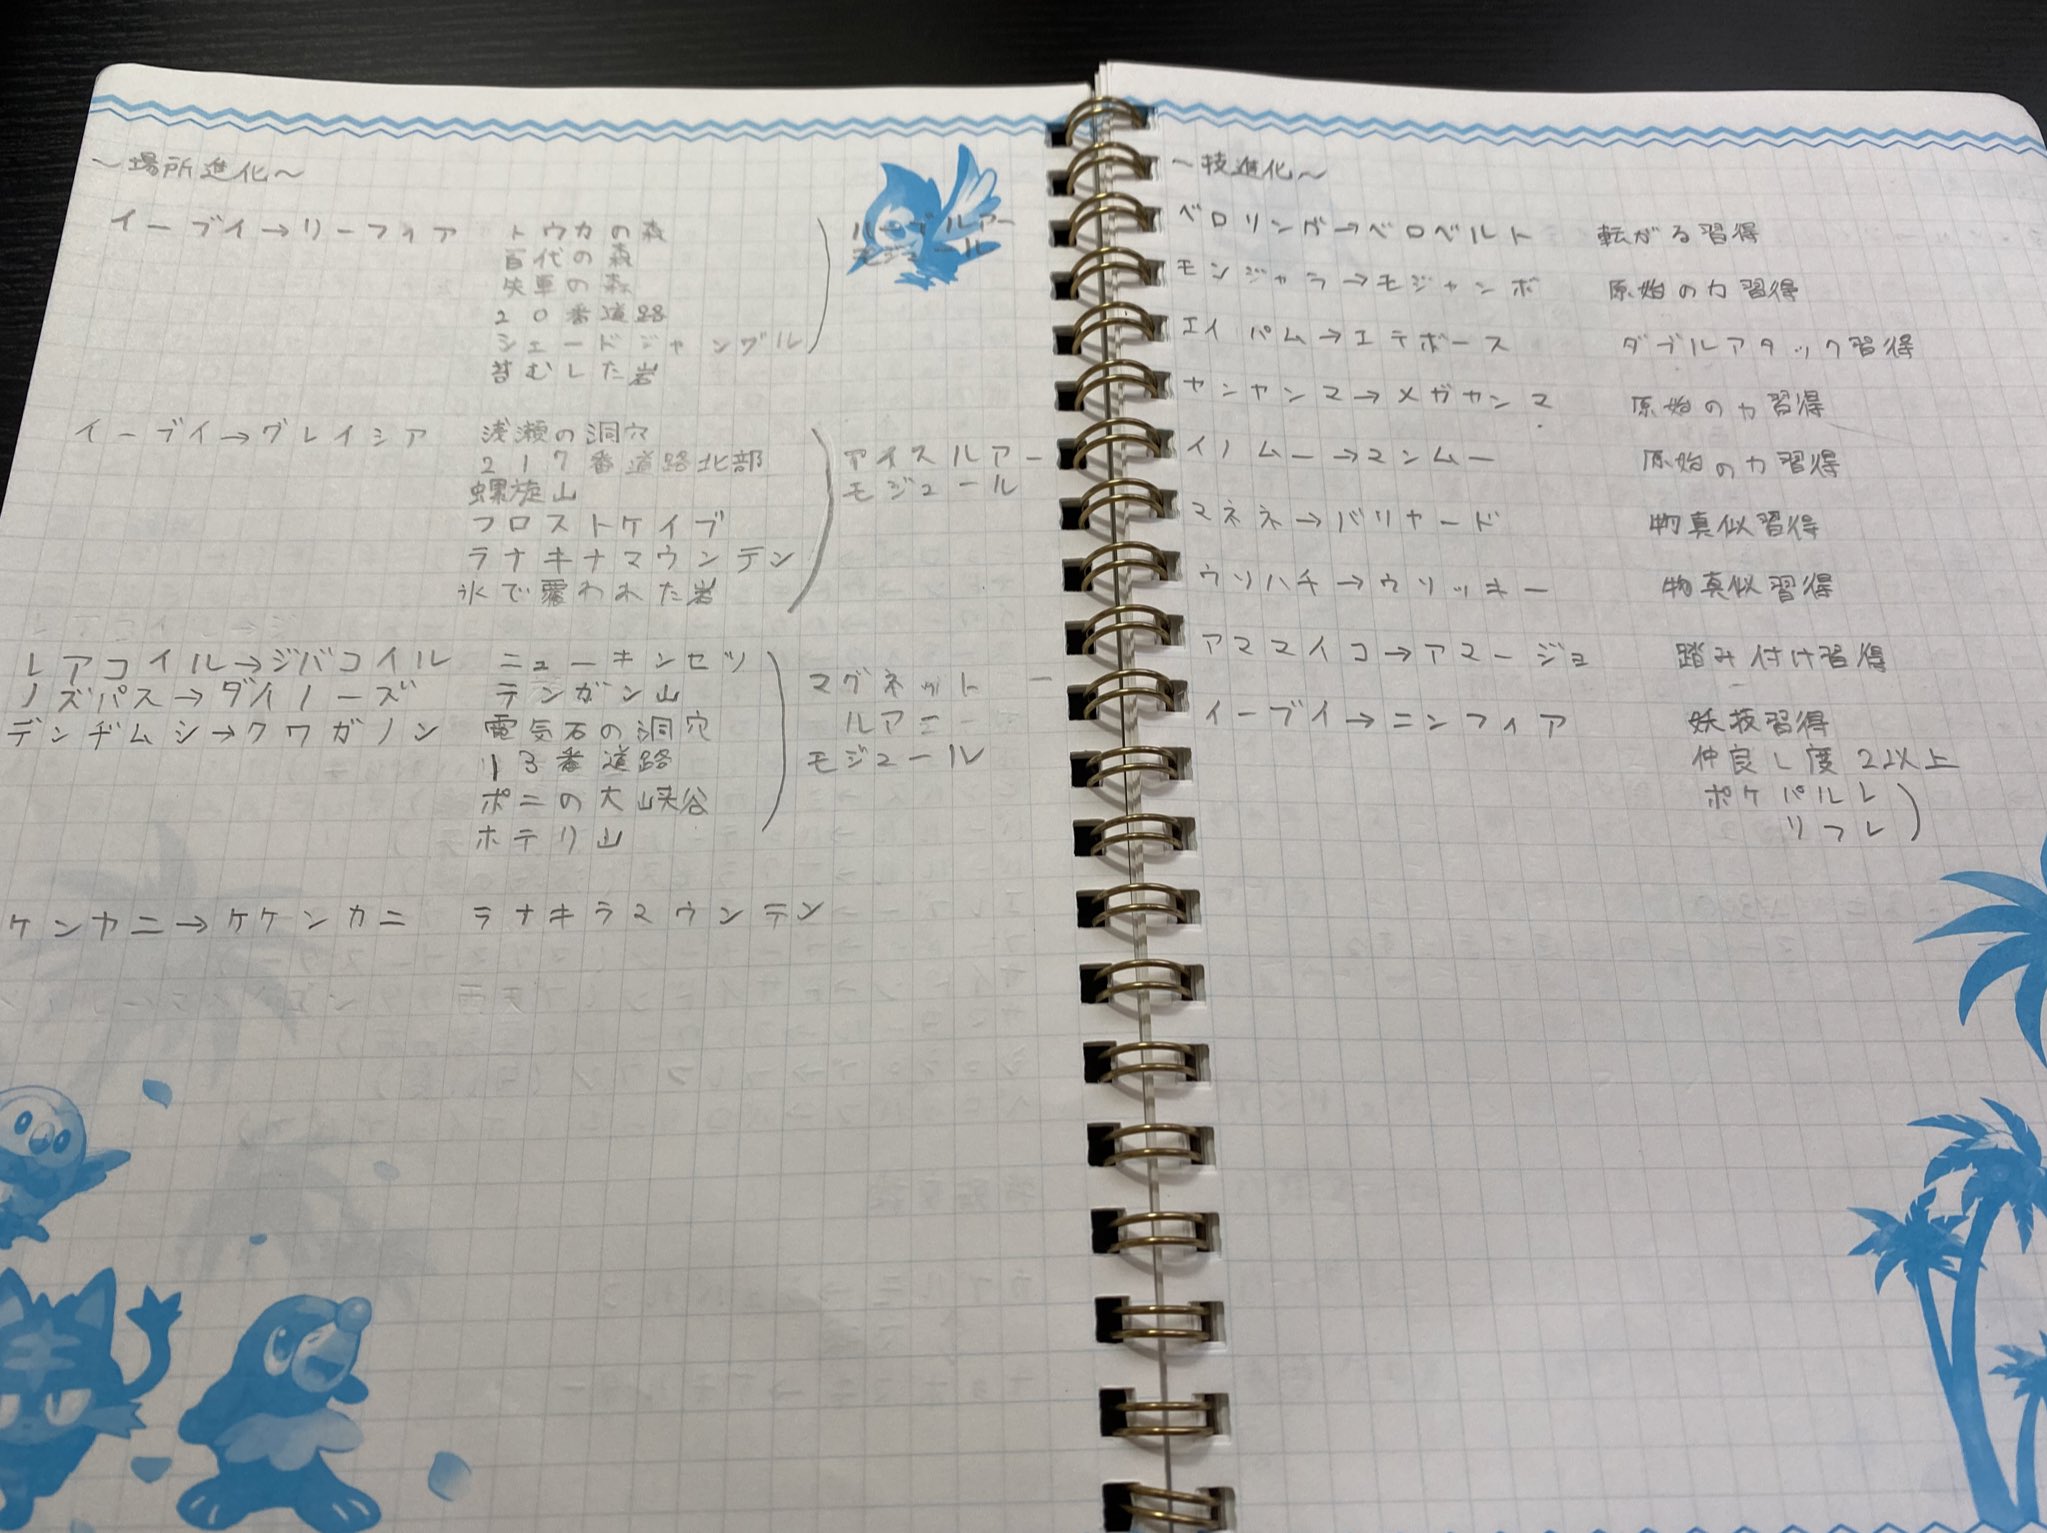 ～場所進化～
イーブイ→リーフィア トウカの森
百代の森
矢車の森
20番道路
シェードジャングル
苔むした岩
ルーブルアー
モジュール
イーブイ→グレイシア 浅瀬の洞穴
217番道路北部
螺旋山
フロストケイブ
ラナキナマウンテン
氷で覆われた岩
アイスルアー
モジュール
レアコイル→ジバコイル ニューキンセツ
ノズパス→ダイノーズ テンガン山
デンヂムシ→クワガノン 電気石の洞穴
13番道路
ポニの大峡谷
ホテリ山
マグネット
ルアー
モジュール
ケンカニ→ケケンカニ ラナキラマウンテン
～技進化～
ベロリンガ→ベロベルト 転がる習得
モンジャラ→モジャンボ 原始の力習得
エイパム→エテボース ダブルアタック習得
ヤンヤンマ→メガヤンマ 原始の力習得
イノムー→マンムー 原始の力習得
マネネ→バリヤード 物真似習得
ウソハチ→ウソッキー 物真似習得
アママイコ→アマージョ 踏み付け習得
イーブイ→ニンフィア 妖技習得
仲良し度2以上
ポケパルレ
リフレ）